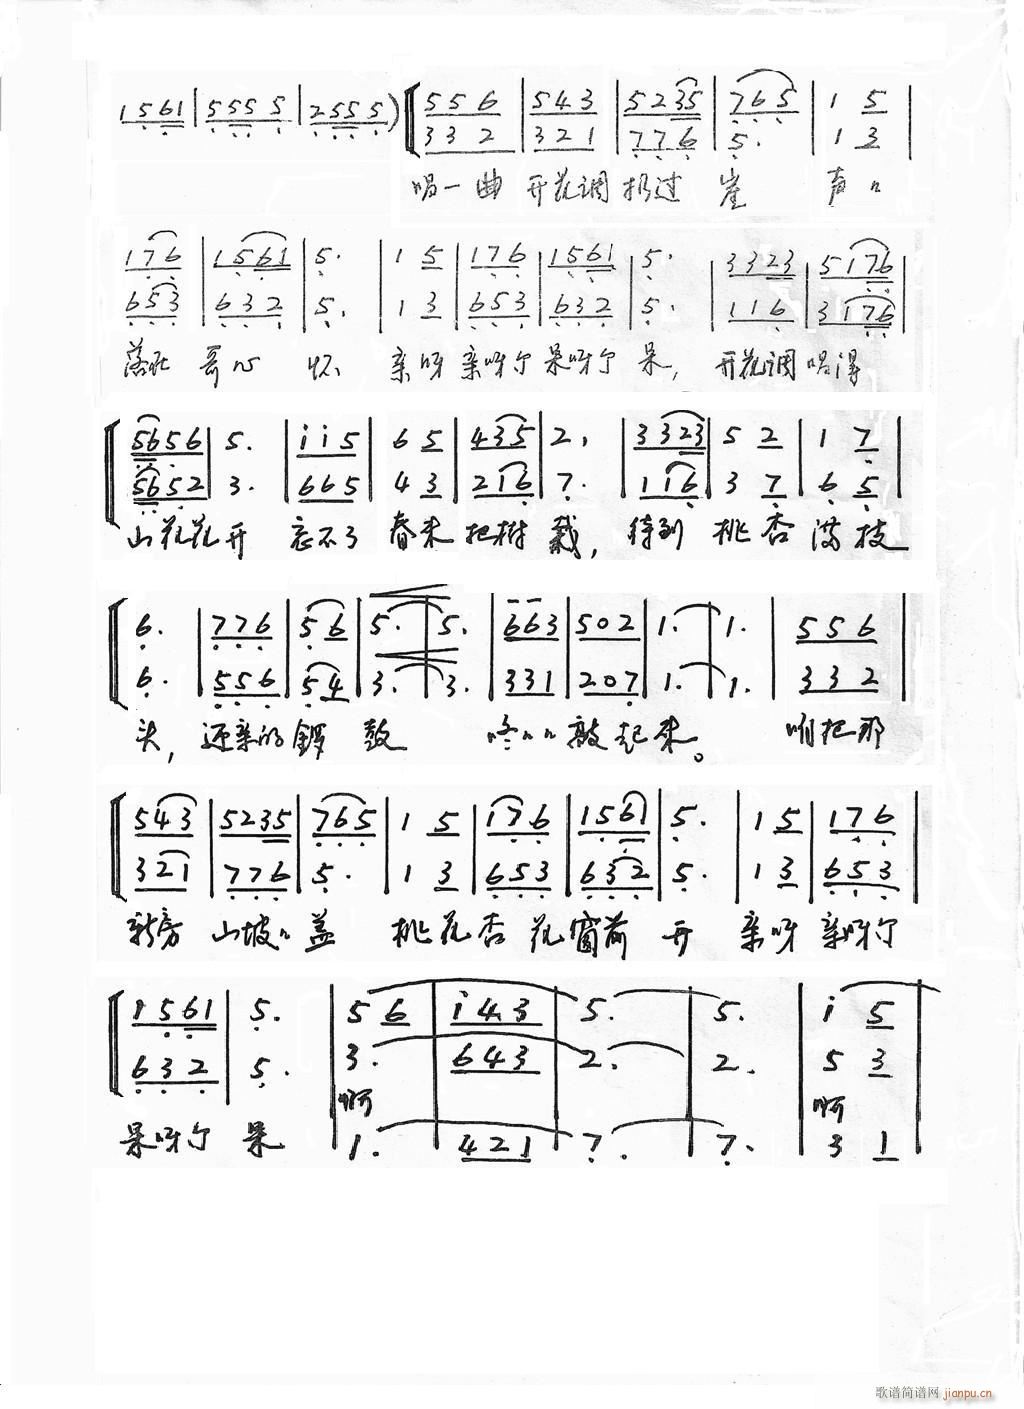 1561 | 5555 | 2555) [ 556 | 543 | 5235 | 765 | 1 5 |
332 | 321 | 776 | 5. | 1 3 |
唱一曲 开花调 扔过 崖 声〃
176 | 1561 | 5. | 1 5 | 176 | 1561 | 5. | 3323 | 5176 |
653 | 632 | 5. | 1 3 | 653 | 632 | 5. | 116 | 3176 |
落在 哥心 怀 亲呀 亲呀个 呆呀个 呆, 开花调 唱得
5656 | 5. | i i 5 | 6 5 | 435 | 2, | 3323 | 5 2 | 1 7 |
5652 | 3. | 665 | 4 3 | 216 | 7. | 116 | 3 7 | 6 5 |
山花花开 忘不了 春来 把树 栽, 待到 桃杏 满枝
6. | 776 | 56 | 5. | 5. | 663 | 502 | 1. | 1. | 556 |
6. | 556 | 54 | 3. | 3. | 331 | 207 | 1. | 1. | 332 |
头, 迎亲的 锣 鼓 咚〃〃 敲起来。 咱把那
543 | 5235 | 765 | 1 5 | 176 | 1561 | 5. | 1 5 | 176 |
321 | 776 | 5. | 1 3 | 653 | 632 | 5. | 1 3 | 653 |
新房 山坡〃 盖 桃花 杏 花窗前 开 亲呀 亲呀个
1561 | 5. | 5 6 | i 4 3 | 5. | 5. | i 5 |
632 | 5. | 3. | 643 | 2. | 2. | 5 3 |
啊 啊
呆呀个 呆 1. | 421 | 7. | 7. | 3 1 |
歌谱简谱网 jianpu.cn